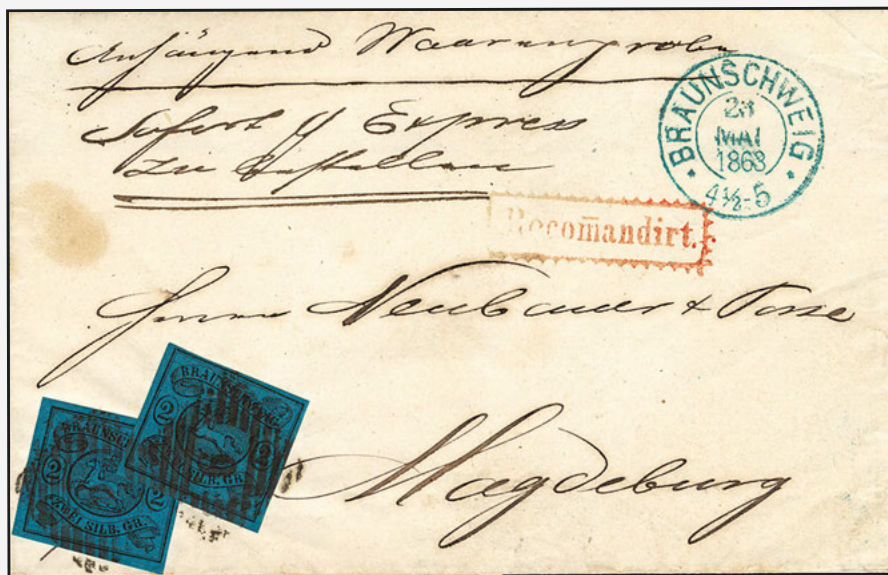 Anhängend Waarenprobe
Sofort p Express
zu bestellen
BRAUNSCHWEIG
23
MAI
1863
4½-5
Recom̄andirt.
Herrn Neubauer & Porse
Magdeburg
BRAUNSCHWEIG
2 2
SILB. GR.
BRAUNSCH
2 2
ZWEI SILB. GR.